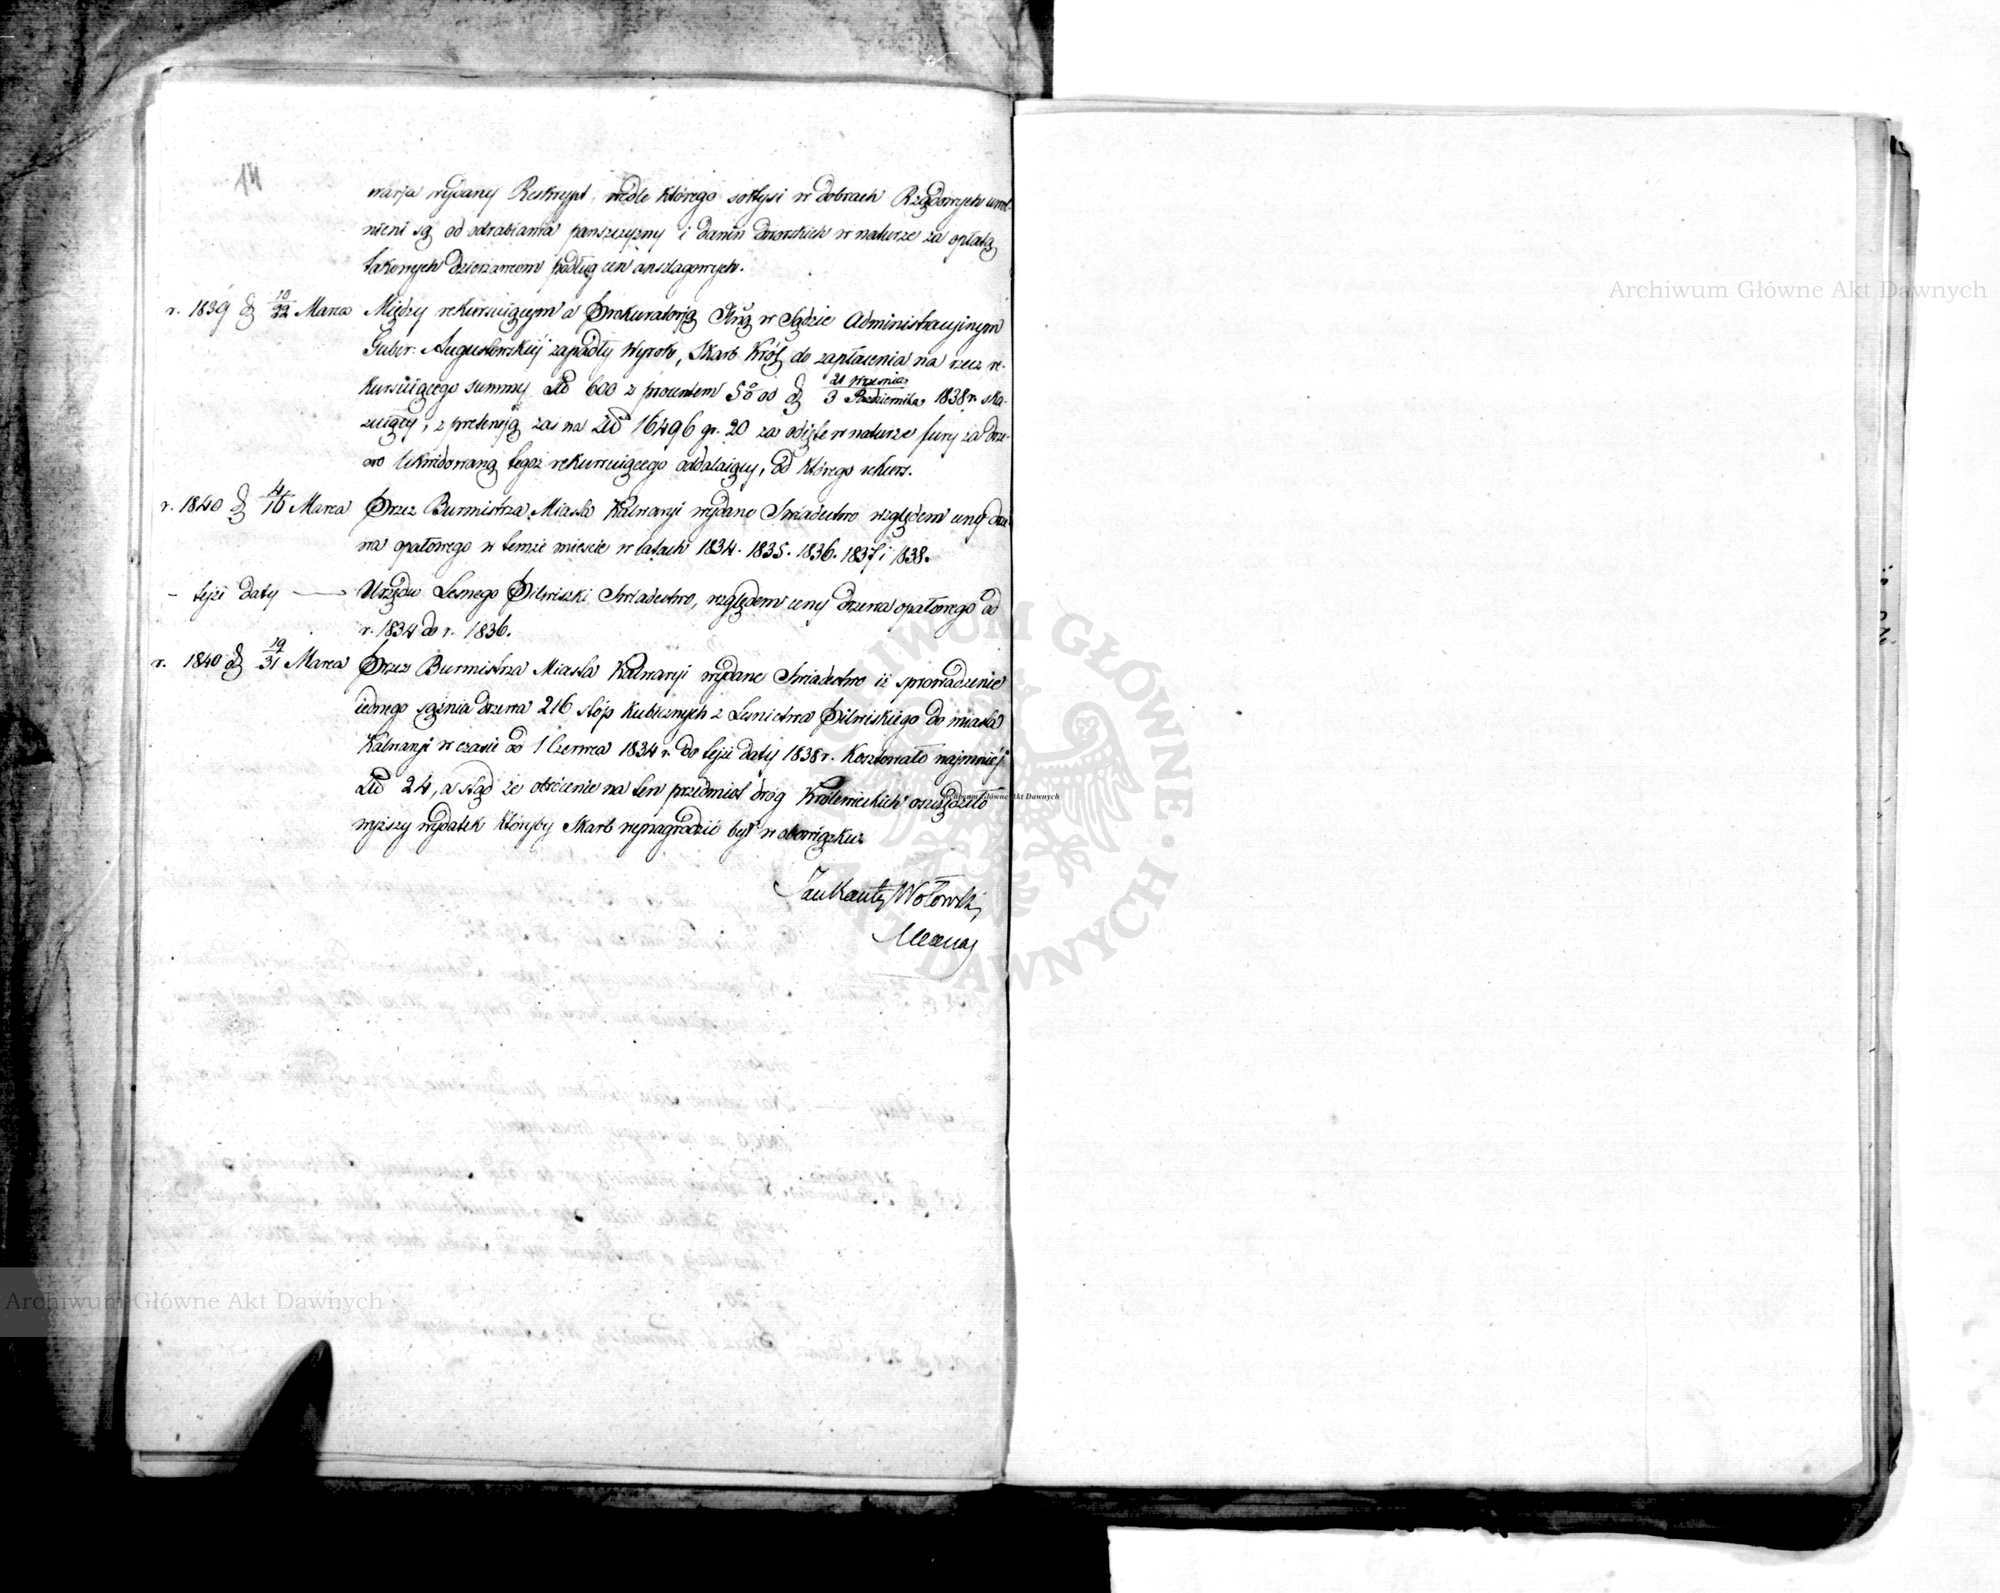 14
warja wydany Reskrypt, wedle którego sołtysi w dobrach Rządowych uwol-
nieni są od odrabiania pańszczyzny i danin dworskich w naturze za opłatą
takowych dzierżawcom podług cen anszlagowych.
r. 1839 d 10/22 Marca Między rekurującym a Prokuratorją w Sądzie Administracyjnym
Guber: Augustowskiej zapadły Wyrok, Skarb Król do zapłacenia na rzecz re-
kurującego summy Złd 600 z procentem 5% od d 21 Września/3 Października 1838 r. ska-
zujący, z pretensją zaś na Złd 16496 gr. 20 za odjęte w naturze fury za drze-
wo likwidowaną tegoż rekurującego oddalający, od którego rekurs.
r. 1840 d 4/16 Marca Przez Burmistrza Miasta Kalwaryi wydane Świadectwo względem ceny drze-
wa opałowego w temże mieście w latach 1834. 1835. 1836. 1837 i 1838.
- tejże daty — Urzędu Leśnego Pilwiszki Świadectwo, względem ceny drzewa opałowego od
r. 1834 do r. 1836.
r. 1840 d 19/31 Marca Przez Burmistrza Miasta Kalwaryi wydane Świadectwo iż sprowadzenie
jednego sążnia drzewa 216 stóp kubicznych z Leśnictwa Pilwiskiego do miasta
Kalwaryi w czasie od 1 Czerwca 1834 r. do tejże daty 1838 r. kosztowało najmniéj
Złd 24, a stąd że obrócenie na ten przedmiot dróg Królewieckich oszczędziło
wyższy wydatek któryby Skarb wynagrodzić był w obowiązku.
Jan Kanty Wołowski
Archiwum Główne Akt Dawnych
Archiwum Główne Akt Dawnych
Archiwum Główne Akt Dawnych
ARCHIWUM GŁÓWNE AKT DAWNYCH